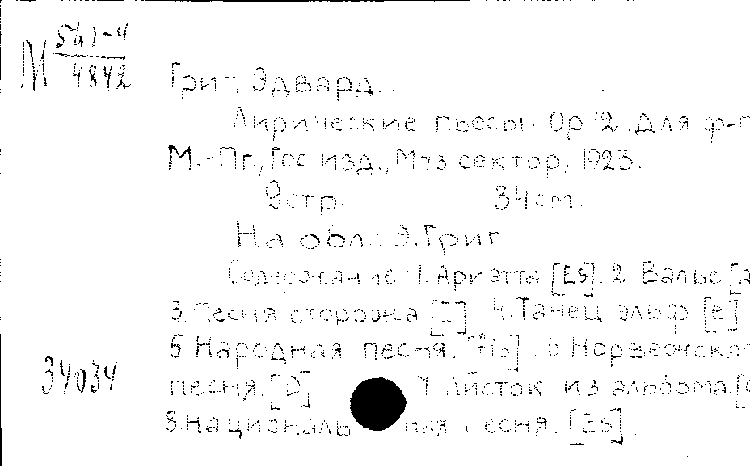 М 5а1-4
4842
Григ, Эдвард.
Лирические пьесы. Ор. 12. Для ф-п
М.-Пг., Гос изд., Муз сектор, 1923.
9 стр. 34 см.
На обл.: Э. Григ
Содержание: 1. Ариэтта [Es]. 2. Вальс [a
3. Песня сторожа [E] 4. Танец эльф [e]
5 Народная песня. [fis]. 6 Норвежска
34034
песня. [D] 7 Листок из альбома. [e
8. Националь ная песня. [Es].